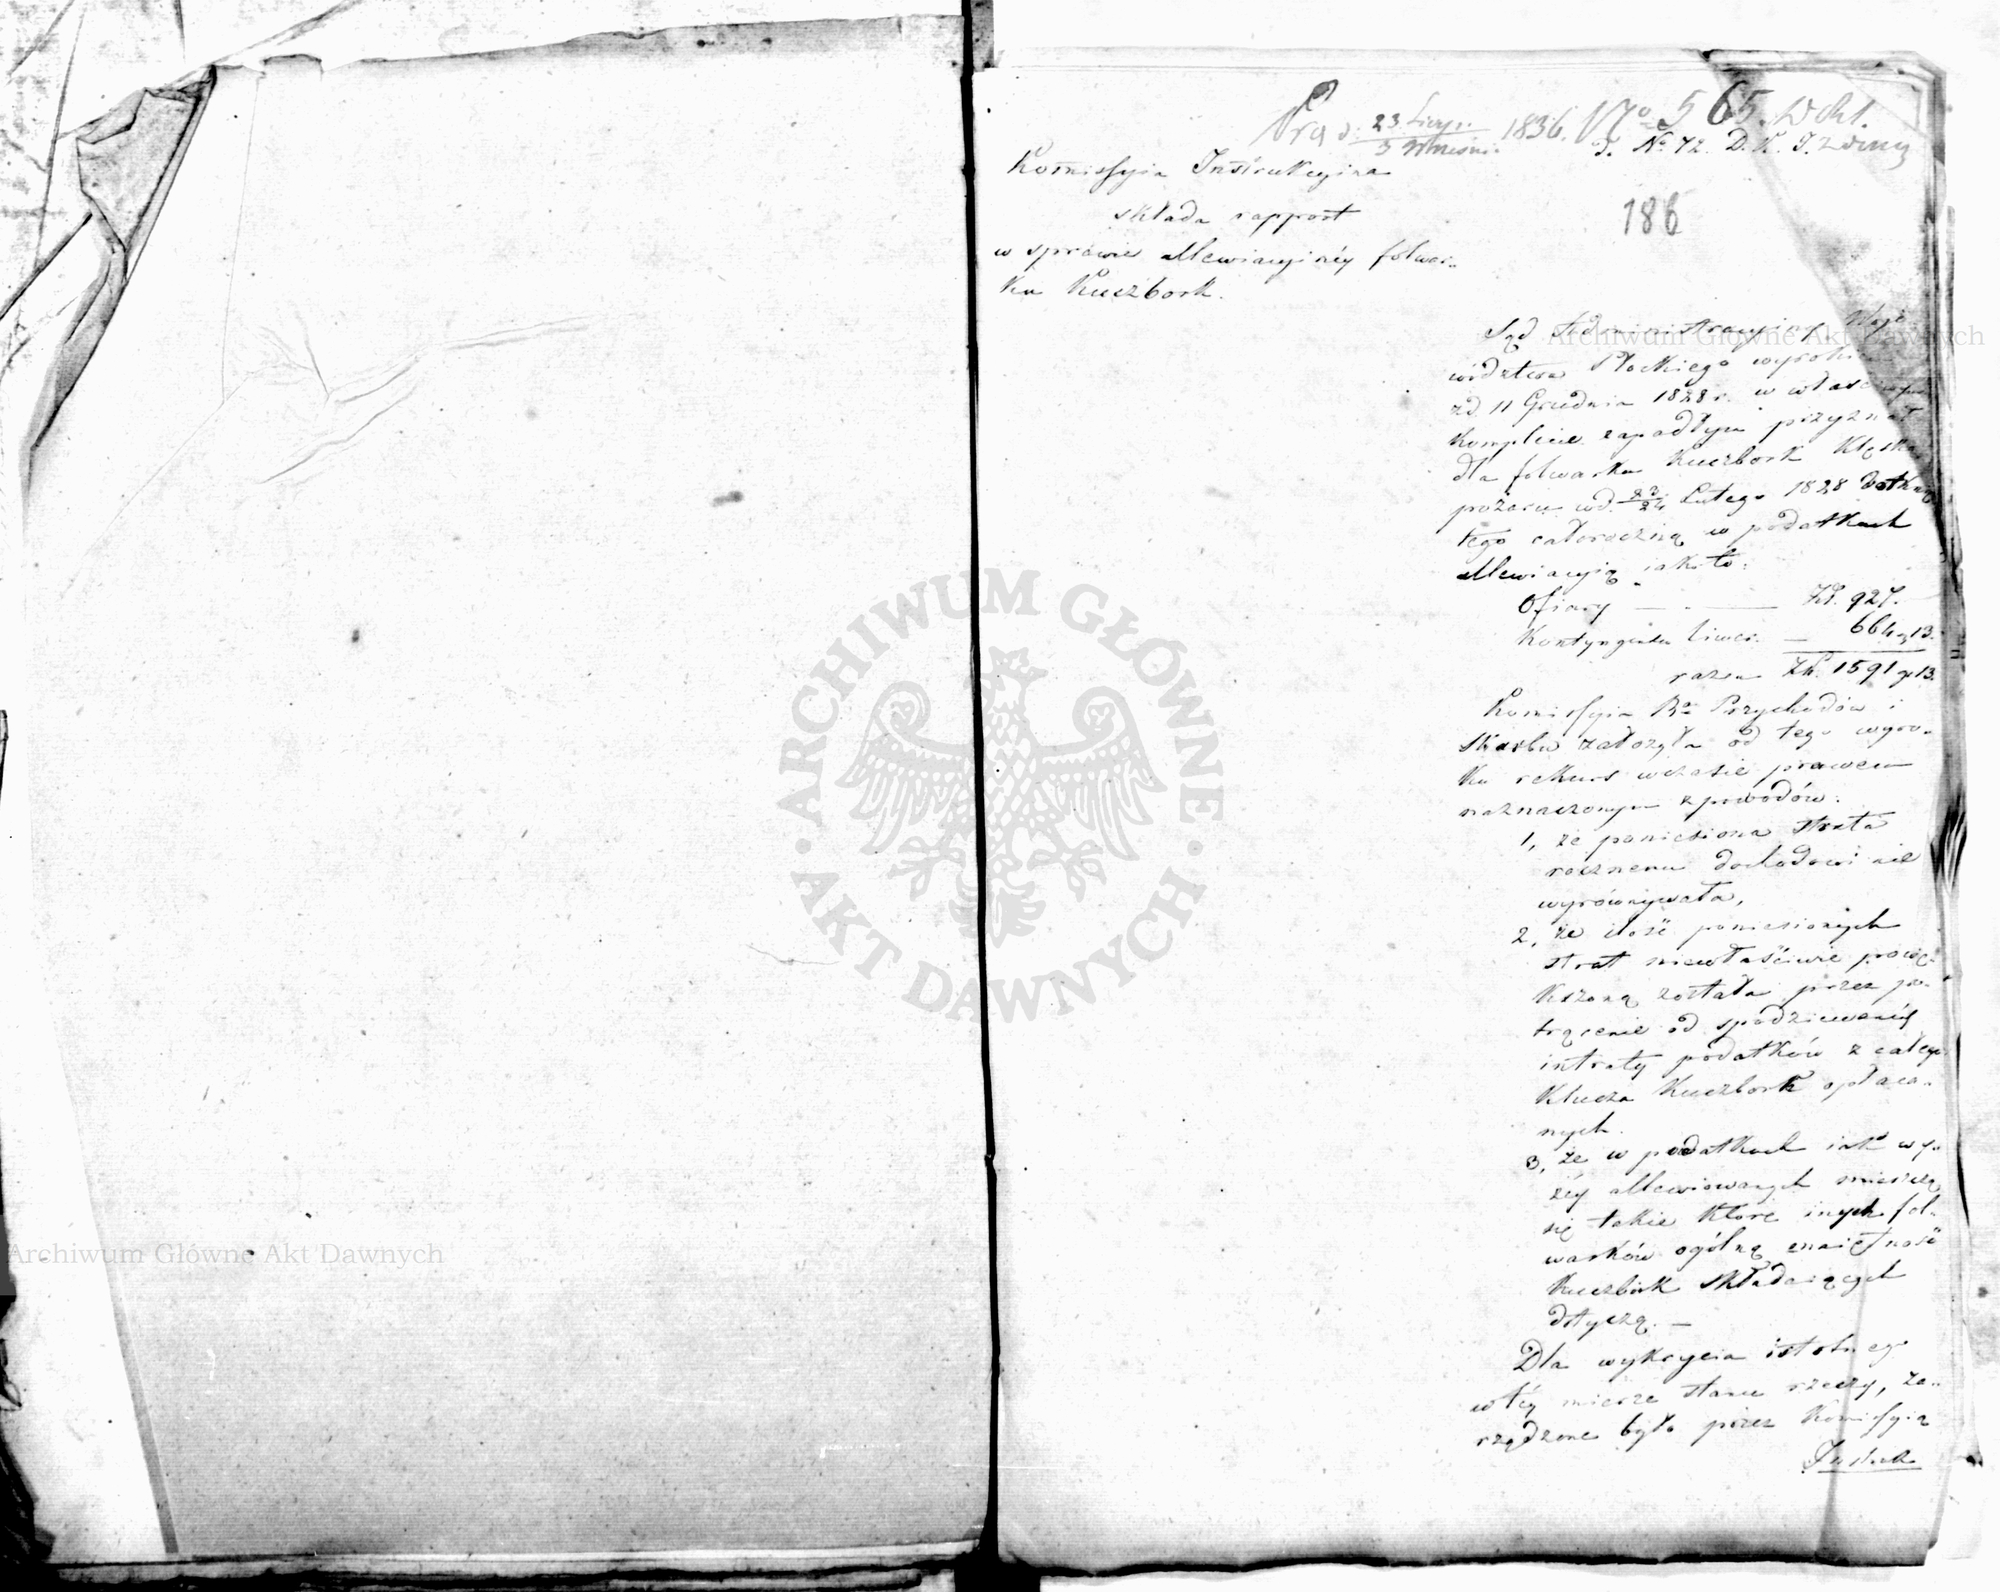 Pra d. 23 Sierp. / 3 Wrześni. 1836. No 565.
d. No 72. D. K. I.
186
Kommissyia Instrukcyina
składa rapport
w sprawie allewiacyinéy folwar-
ku Kuczbork.
Sąd Administracyiny Woje
wództwa Płockiego wyrokiem
zd. 11 Grudnia 1828 r. w właściwym
komplecie zapadłym przyznał
dla folwarku Kuczbork klęską
pożaru w d. 23/24 Lutego 1828 dotknię
tego całoroczną w podatkach
allewiacyią iako to:
Ofiary — Zł. 927.
Kontyngensu liwer. — 664 g 13.
razem Zł. 1591 gr 13.
Kommissyia Rz. Przychodów i
Skarbu założyła od tego wyro-
ku rekurs w czasie prawem
naznaczonym z powodów:
1, że poniesiona strata
rocznemu dochodowi nie
wyrównywała,
2, że ilość poniesionych
strat niewłaściwie powię-
kszoną została przez po-
trącenie od spodziewanéy
intraty podatków z całego
Klucza Kuczbork opłaca-
nych.
3, że w podatkach iak wy-
żéy allewiowanych mieszczą
się takie które inych fol-
warków ogólną maiętność
Kuczbork składaiących
dotyczą. —
Dla wykrycia istotnego
w téy mierze stanu rzeczy, za-
rządzone było przez Kommissyią
Instruk
ARCHIWUM GŁÓWNE AKT DAWNYCH
Archiwum Główne Akt Dawnych
Archiwum Główne Akt Dawnych